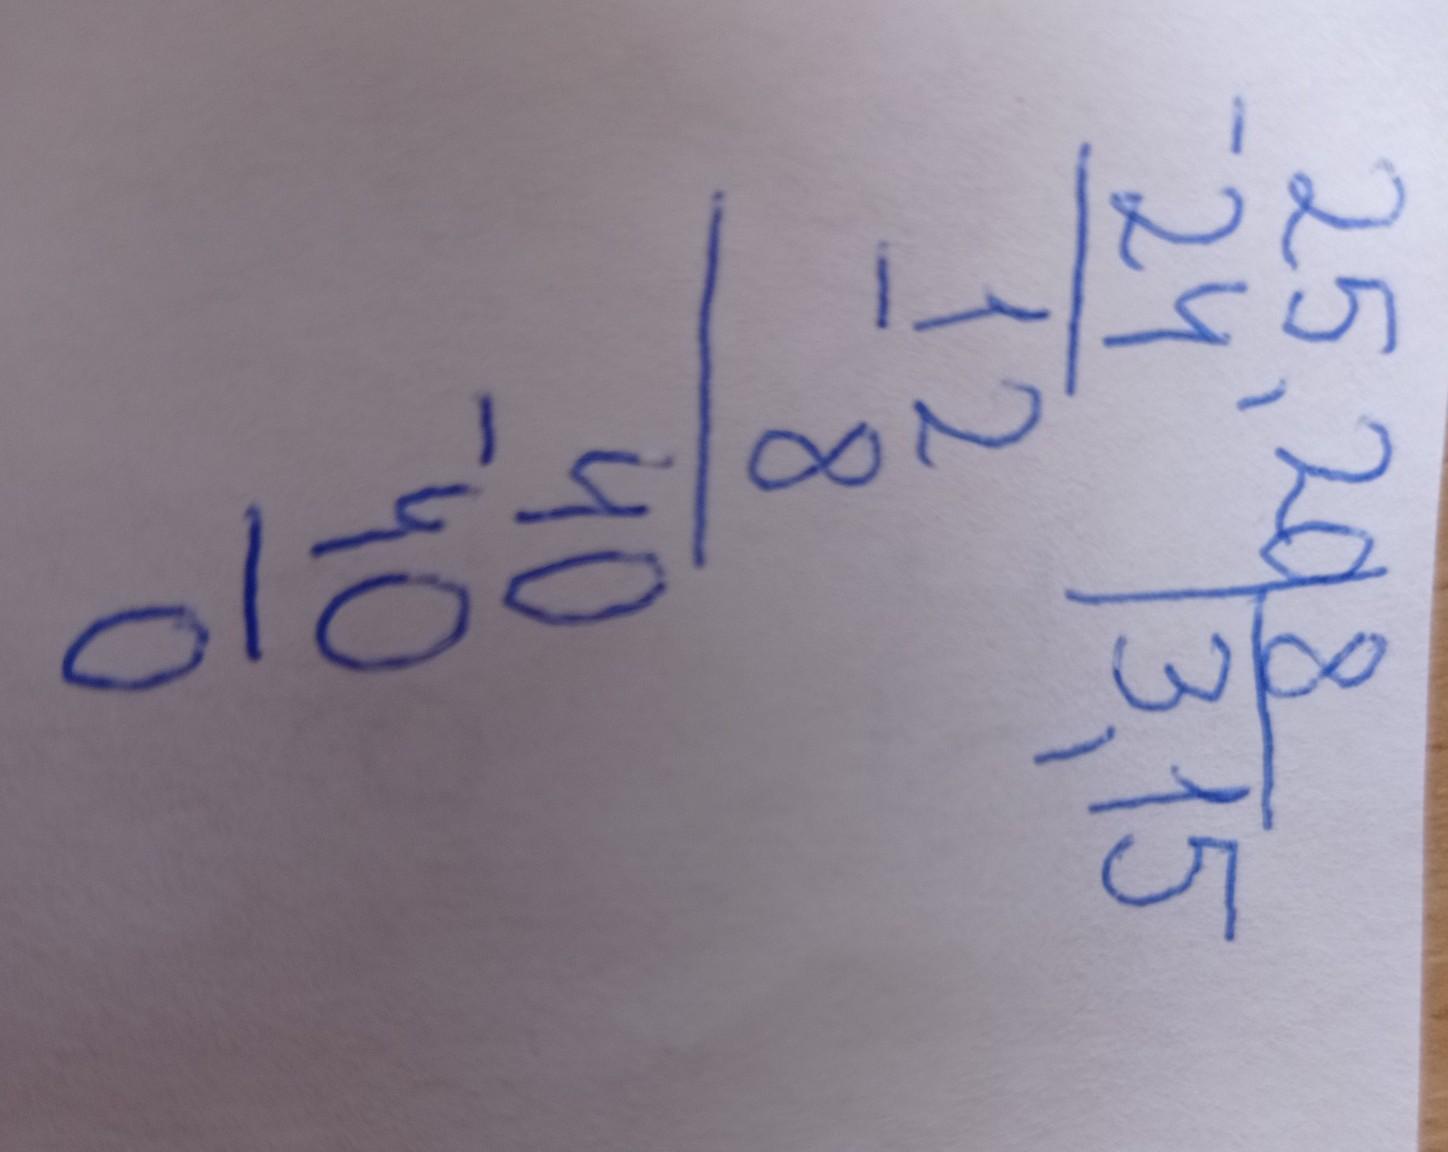 25,20 8
- 24 3,15
12
- 8
40
- 40
0